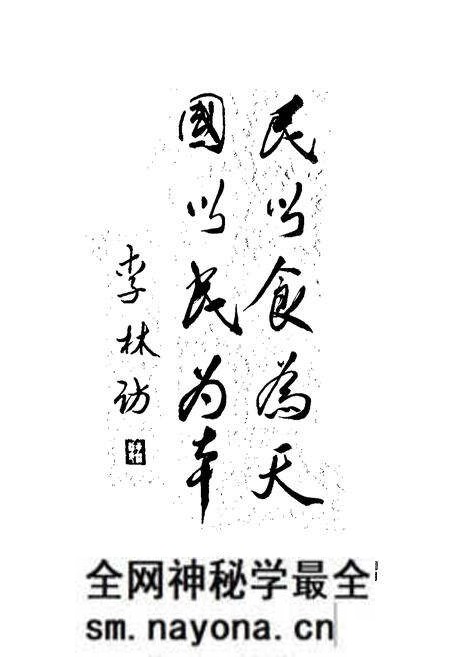 民以食為天
國以民为本
李林
全网神秘学最全
sm.nayona.cn